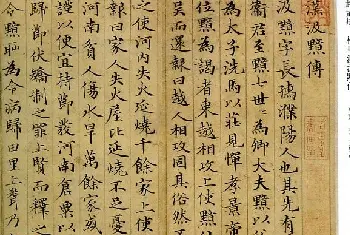 漢汲黯傳
汲黯字長孺濮陽人也其先有
衛君至黯七世為卿大夫黯以父
為太子洗馬以莊見憚孝景帝
位黯為謁者東越相攻上使黯
吳而還報曰越人相攻固其俗然
之使河內失火延燒千餘家上使
報曰家人失火屋比延燒不足憂
河南貧人傷水旱萬餘家或
謹以便宜持節發河南倉粟以
歸節伏矯制之罪上賢而釋之
令黯恥為令病歸田里上聞乃